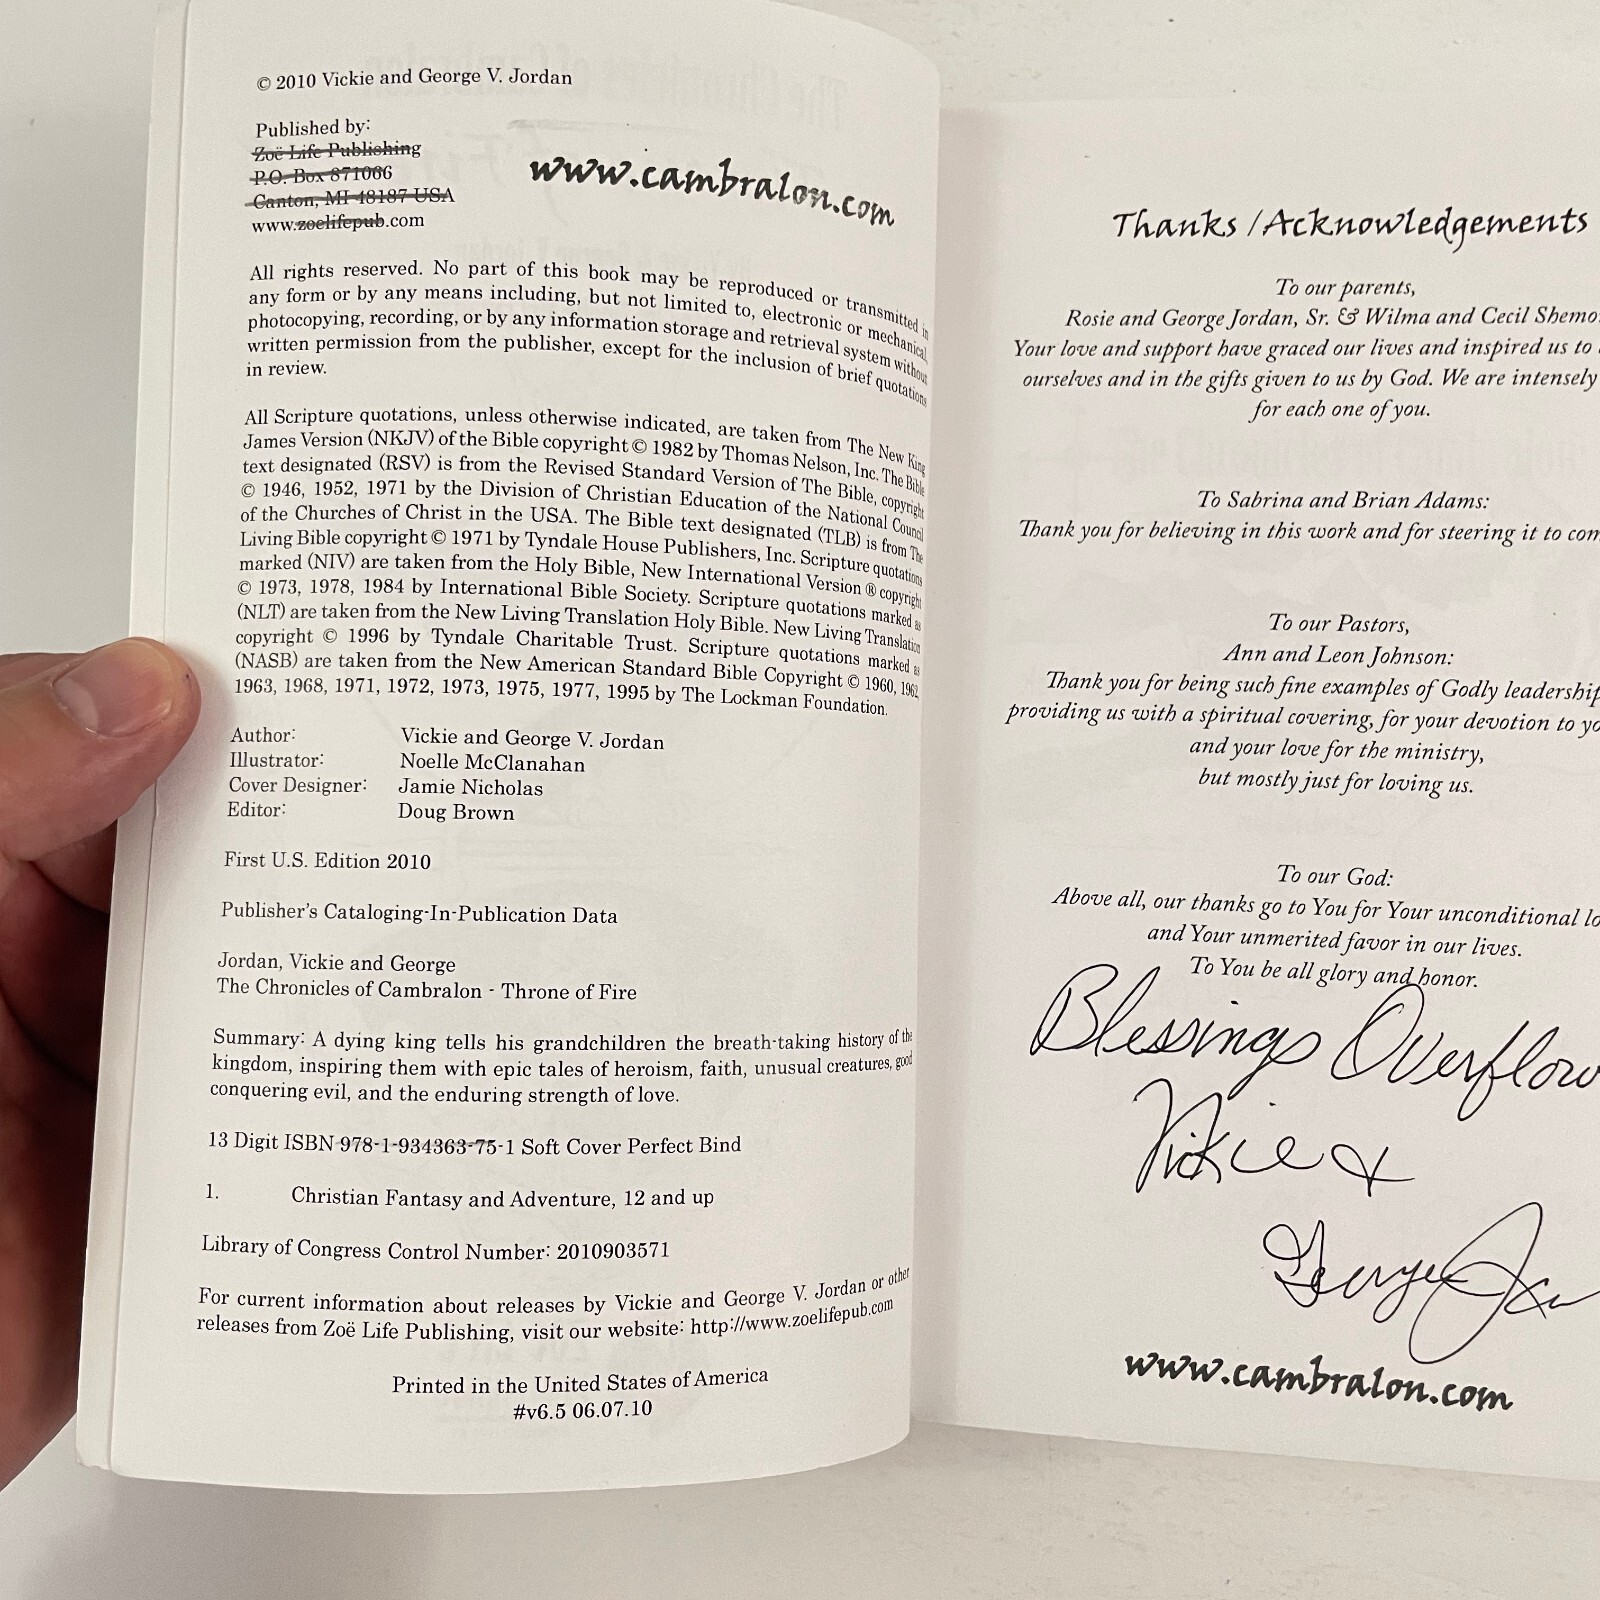 © 2010 Vickie and George V. Jordan
Published by:
Zoë Life Publishing
P.O. Box 871066
Canton, MI 48187 USA
www.zoelifepub.com
www.cambralon.com
All rights reserved. No part of this book may be reproduced or transmitted in
any form or by any means including, but not limited to, electronic or mechanical,
photocopying, recording, or by any information storage and retrieval system without
written permission from the publisher, except for the inclusion of brief quotations
in review.
All Scripture quotations, unless otherwise indicated, are taken from The New King
James Version (NKJV) of the Bible copyright © 1982 by Thomas Nelson, Inc. The Bible
text designated (RSV) is from the Revised Standard Version of The Bible, copyright
© 1946, 1952, 1971 by the Division of Christian Education of the National Council
of the Churches of Christ in the USA. The Bible text designated (TLB) is from The
Living Bible copyright © 1971 by Tyndale House Publishers, Inc. Scripture quotations
marked (NIV) are taken from the Holy Bible, New International Version ® copyright
© 1973, 1978, 1984 by International Bible Society. Scripture quotations marked as
(NLT) are taken from the New Living Translation Holy Bible. New Living Translation
copyright © 1996 by Tyndale Charitable Trust. Scripture quotations marked as
(NASB) are taken from the New American Standard Bible Copyright © 1960, 1962,
1963, 1968, 1971, 1972, 1973, 1975, 1977, 1995 by The Lockman Foundation.
Author: Vickie and George V. Jordan
Illustrator: Noelle McClanahan
Cover Designer: Jamie Nicholas
Editor: Doug Brown
First U.S. Edition 2010
Publisher's Cataloging-In-Publication Data
Jordan, Vickie and George
The Chronicles of Cambralon - Throne of Fire
Summary: A dying king tells his grandchildren the breath-taking history of the
kingdom, inspiring them with epic tales of heroism, faith, unusual creatures, good
conquering evil, and the enduring strength of love.
13 Digit ISBN 978-1-934363-75-1 Soft Cover Perfect Bind
1. Christian Fantasy and Adventure, 12 and up
Library of Congress Control Number: 2010903571
For current information about releases by Vickie and George V. Jordan or other
releases from Zoë Life Publishing, visit our website: http://www.zoelifepub.com
Printed in the United States of America
#v6.5 06.07.10
Thanks /Acknowledgements
To our parents,
Rosie and George Jordan, Sr. & Wilma and Cecil
Your love and support have graced our lives and inspired us to
ourselves and in the gifts given to us by God. We are intensely
for each one of you.
To Sabrina and Brian Adams:
Thank you for believing in this work and for steering it to
To our Pastors,
Ann and Leon Johnson:
Thank you for being such fine examples of Godly
providing us with a spiritual covering, for your devotion to
and your love for the ministry,
but mostly just for loving us.
To our God:
Above all, our thanks go to You for Your unconditional
and Your unmerited favor in our lives.
To You be all glory and honor.
Blessings Overflow
Vickie &
George
www.cambralon.com